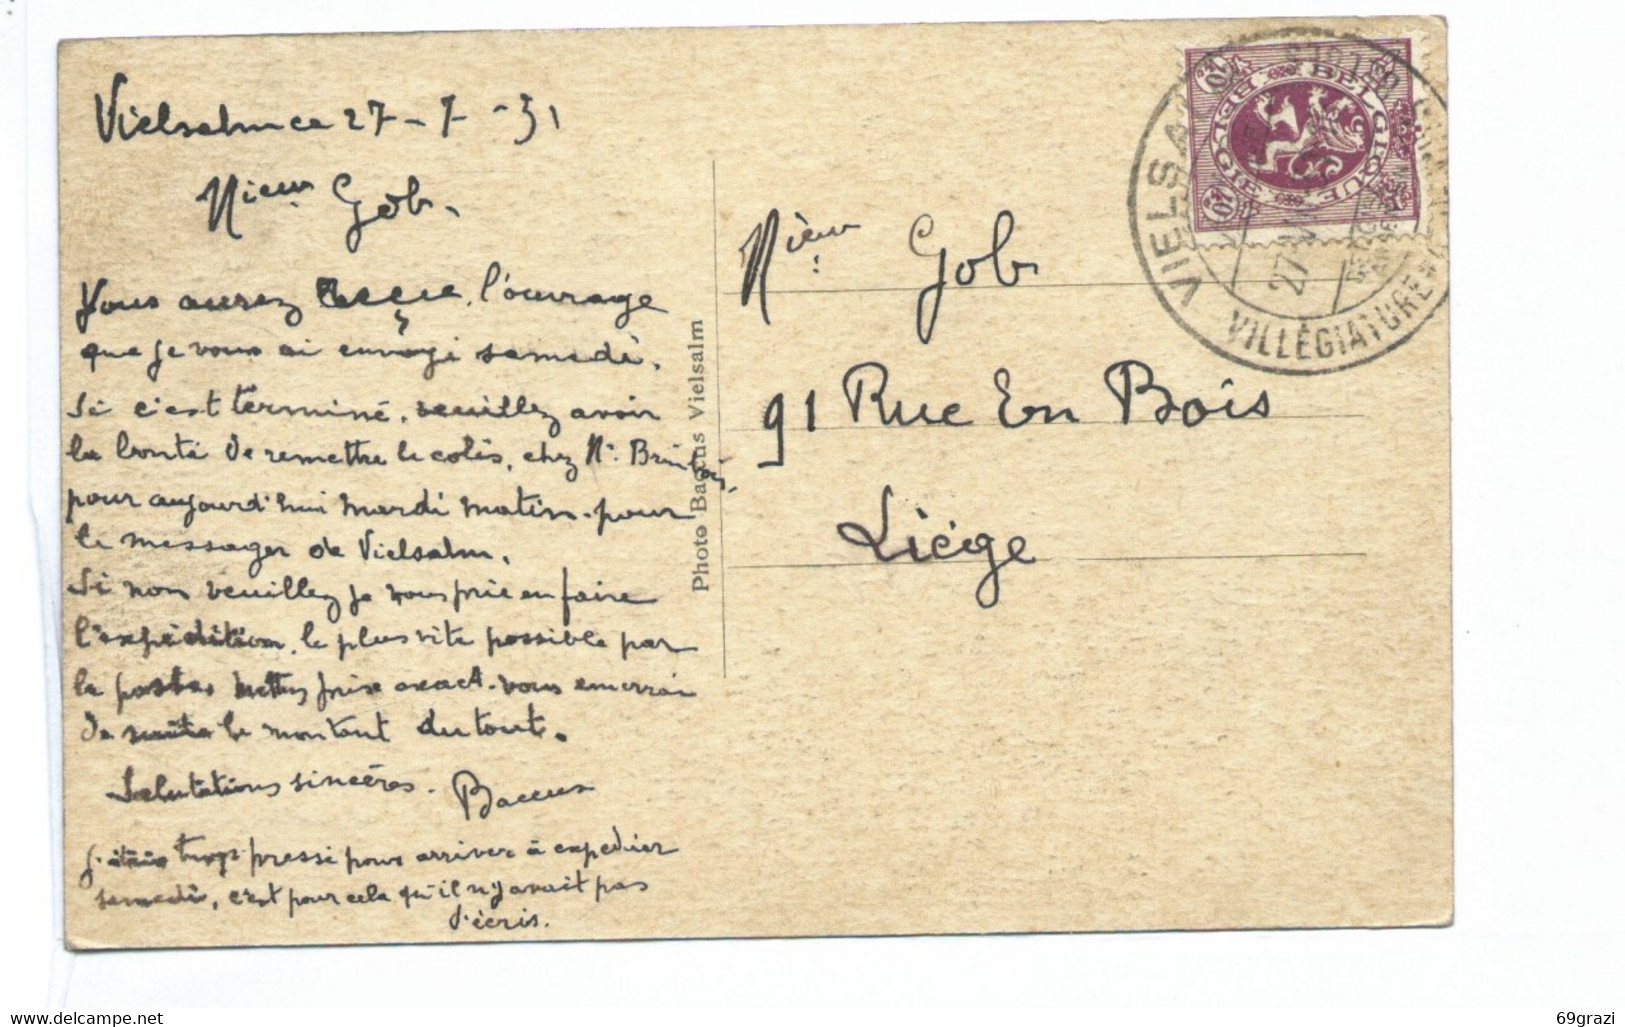 Vielsalm ce 27-7-31
Mieur Gob.
Vous aurez reçue l'ouvrage
que je vous ai envoyé samedi.
Si c'est terminé, veuillez avoir
la bonté de remettre le colis, chez Mr.
pour aujourd'hui mardi matin pour
le messager de Vielsalm.
Si non veuillez je vous prie en faire
l'expédition, le plus vite possible par
la poste, mettez prix exact. vous enverrai
de suite le montant du tout.
Salutations sincères. Baccus
J'étais trop pressé pour arriver à expedier
samedi, c'est pour cela qu'il n'y avait pas
d'écris.
Photo Baccus Vielsalm
Mieur Gob
91 Rue En Bois
Liège
BELGIQUE
BELGIE
10
10
VIELSALM
27
VILLÉGIATURE
69grazi